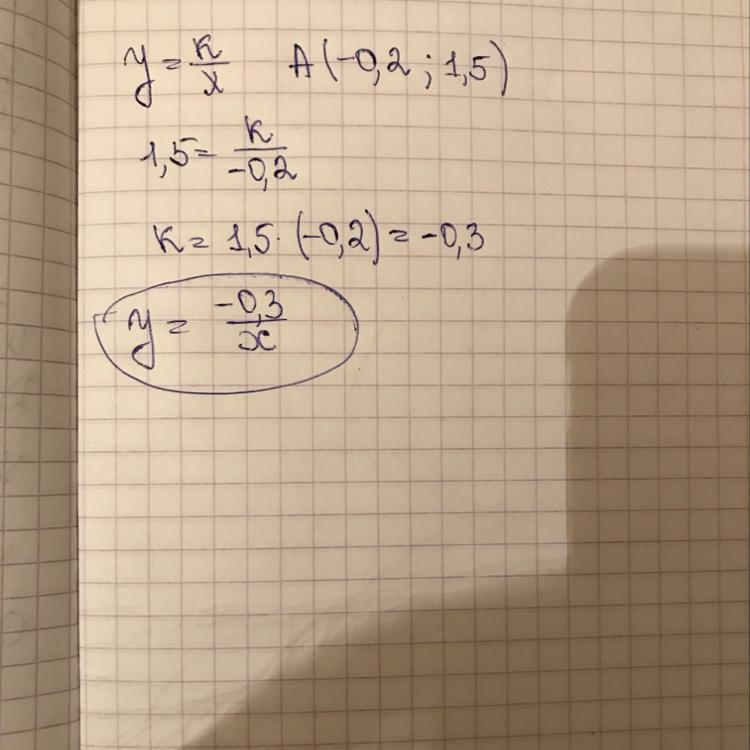 y = к/x A(-0,2 ; 1,5)
1,5 = к/-0,2
к = 1,5 · (-0,2) = -0,3
y = -0,3/x